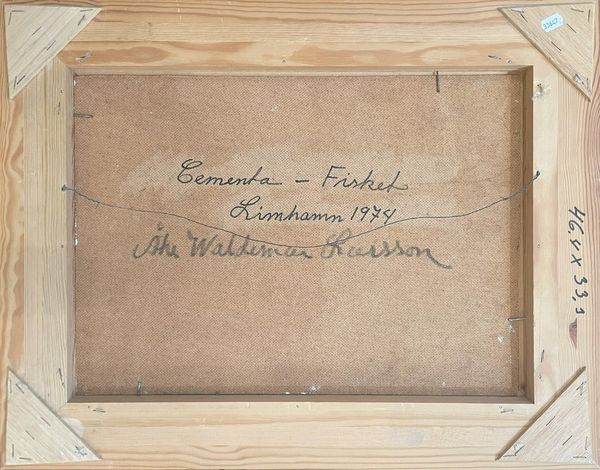 Cementa – Fisket
Limhamn 1974
Åke Waldemar Larsson
46,4 x 33,1